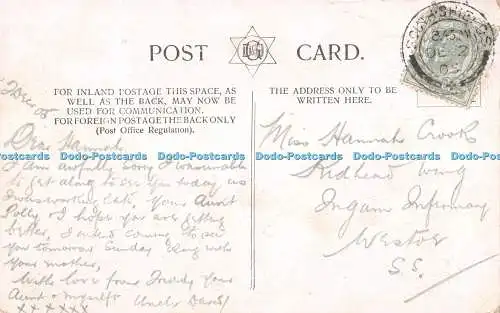 POST CARD.
FOR INLAND POSTAGE THIS SPACE, AS
WELL AS THE BACK, MAY NOW BE
USED FOR COMMUNICATION.
FOR FOREIGN POSTAGE THE BACK ONLY
(Post Office Regulation).
THE ADDRESS ONLY TO BE
WRITTEN HERE.
SOUTH SHIELDS
Dear Hannah
I am awfully sorry I was unable
to get along to see you today as
I was working late, your Aunt
Polly & I hope you are getting
better, I intend coming to see
you tomorrow Sunday along with
your mother,
With love from Freddy your
Aunt & myself Uncle David
x x x x x x
Miss Hannah Crooks
Redhead Wing
Ingam Infirmary
Westoe
S.S.
Dodo-Postcards Dodo-Postcards Dodo-Postcards Dodo-Postcards Dodo-Postcards Dodo-Postcards